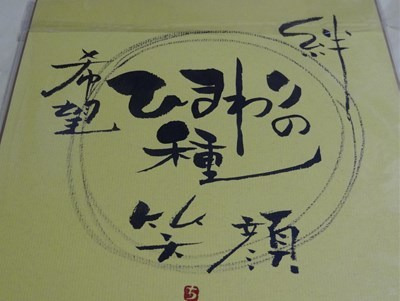 絆
希望
ひまわりの
種
笑顔